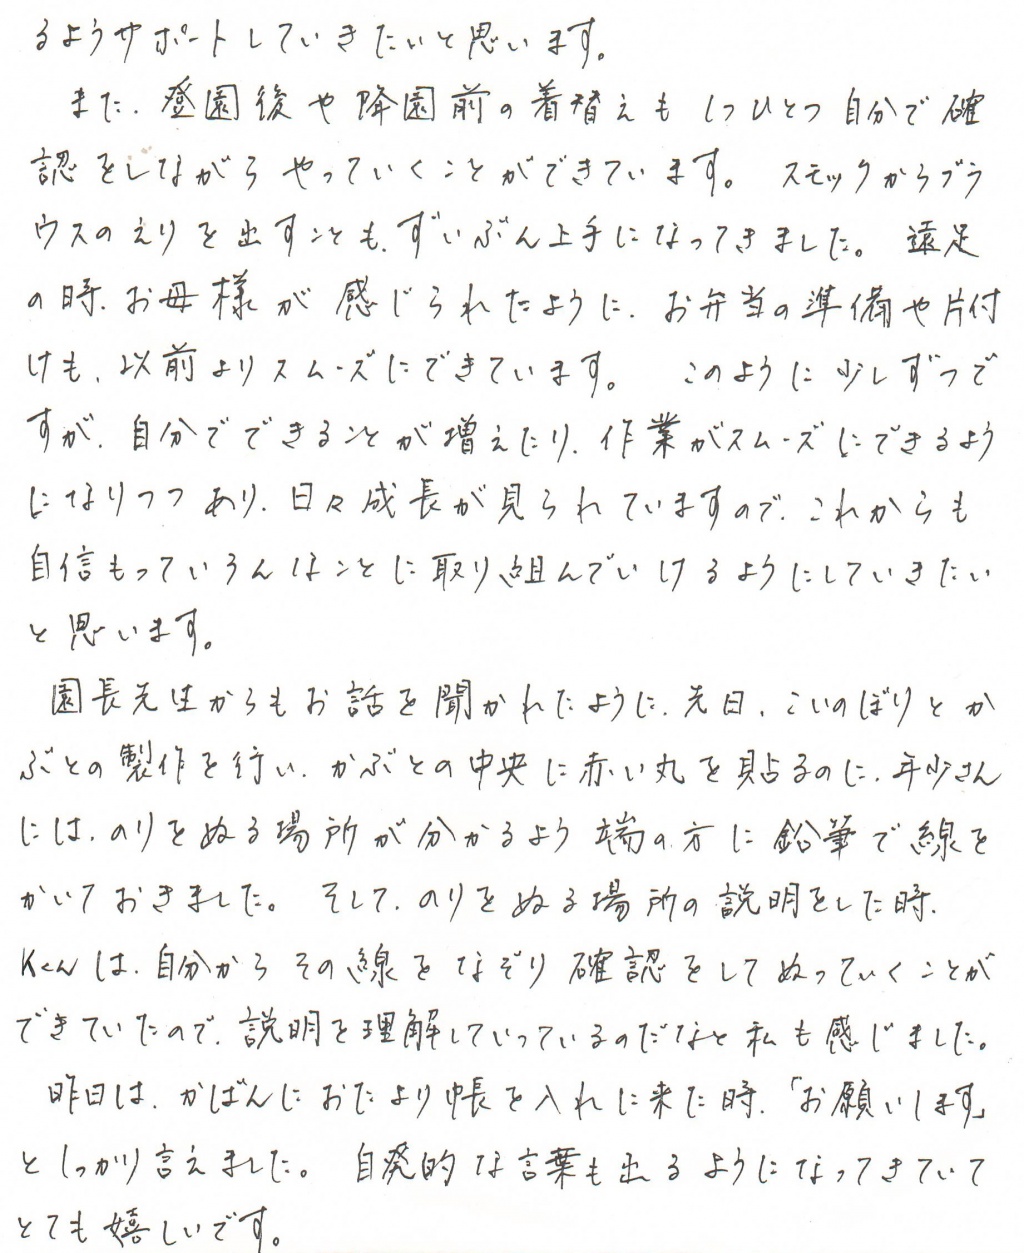 るようサポートしていきたいと思います。
また、登園後や降園前の着替えも1つひとつ自分で確
認をしながらやっていくことができています。 スモックからブラ
ウスのえりを出すことも、ずいぶん上手になってきました。 遠足
の時、お母様が感じられたように、お弁当の準備や片付
けも、以前よりスムーズにできています。 このように少しずつで
すが、自分でできることが増えたり、作業がスムーズにできるよう
になりつつあり、日々成長が見られていますので、これからも
自信もっていろんなことに取り組んでいけるようにしていきたい
と思います。
園長先生からもお話を聞かれたように、先日、こいのぼりとか
ぶとの製作を行い、かぶとの中央に赤い丸を貼るのに、年少さん
には、のりをぬる場所が分かるよう端の方に鉛筆で線を
かいておきました。 そして、のりをぬる場所の説明をした時、
Kくんは、自分からその線をなぞり確認をしてぬっていくことが
できていたので、説明を理解していっているのだなと私も感じました。
昨日は、かばんにおたより帳を入れに来た時、「お願いします」
としっかり言えました。 自発的な言葉も出るようになってきていて
とても嬉しいです。